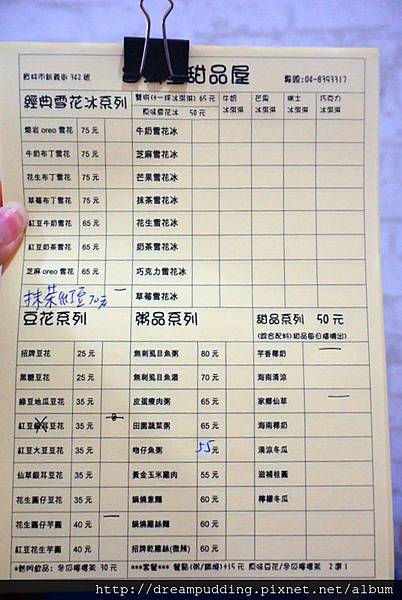 甜品屋
員林市新義街342號
專線:04-8393317
經典雪花冰系列
雙拼(+一球冰淇淋) 65元
原味雪花冰 50元
牛奶冰淇淋
芒果冰淇淋
瑞士冰淇淋
巧克力冰淇淋
熔岩oreo雪花 75元 牛奶雪花冰
牛奶布丁雪花 75元 芝麻雪花冰
花生布丁雪花 75元 芒果雪花冰
草莓布丁雪花 75元 抹茶雪花冰
紅豆牛奶雪花 65元 花生雪花冰
紅豆奶茶雪花 65元 奶茶雪花冰
芝麻oreo雪花 65元 巧克力雪花冰
抹茶紅豆 70元 草莓雪花冰
豆花系列 粥品系列 甜品系列 50元
(綜合配料)甜品每日輪播出)
招牌豆花 25元 無刺虱目魚粥 80元 芋香椰奶
黑糖豆花 25元 無刺虱目魚湯 70元 海南清涼
綠豆地瓜豆花 35元 皮蛋瘦肉粥 65元 家鄉仙草
紅豆銀耳豆花 35元 田園蔬菜粥 65元 海南椰奶
紅豆大豆豆花 35元 吻仔魚粥 55元 清涼冬瓜
仙草銀耳豆花 35元 黃金玉米雞肉 55元 滋補桂圓
花生圓仔豆花 35元 鍋燒意麵 60元 檸檬冬瓜
花生圓仔芋圓 40元 鍋燒雞絲麵 60元
紅豆花生芋圓 40元 招牌乾雞絲(微辣) 60元
*熱門飲品: 冬瓜檸檬茶 30元
***套餐*** 餐點(粥/鍋燒)+15元 原味豆花/冬瓜檸檬茶 2選1
http://dreampudding.pixnet.net/album